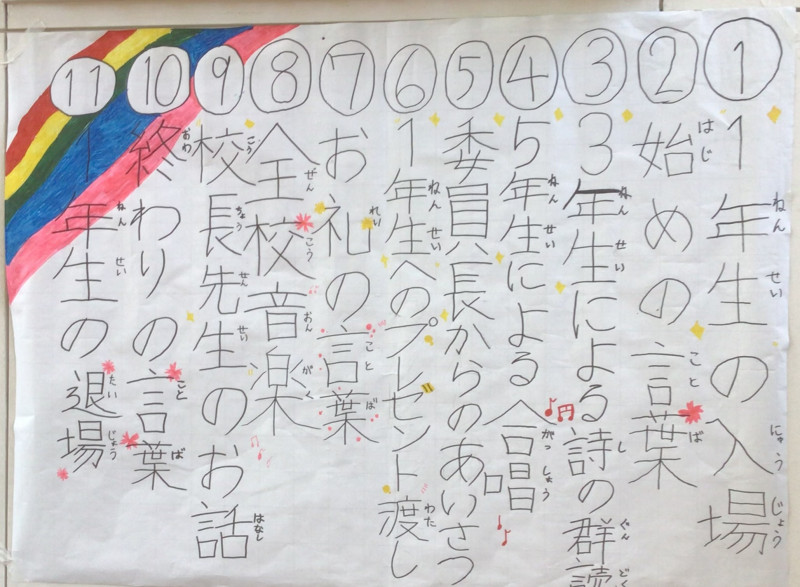 ① 1年生の入場
② 始めの言葉
③ 3年生による詩の群読
④ 5年生による合唱
⑤ 委員長からのあいさつ
⑥ 1年生へのプレゼント渡し
⑦ お礼の言葉
⑧ 全校音楽
⑨ 校長先生のお話
⑩ 終わりの言葉
⑪ 1年生の退場